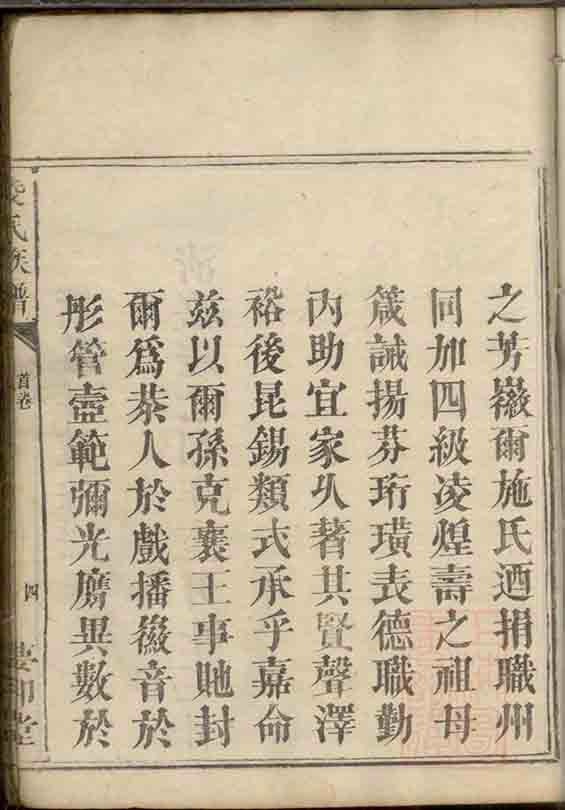 之芳徽爾施氏迺捐職州
同加四級凌煌壽之祖母
箴誡揚芬珩璜表德職勤
內助宜家乆著其賢聲澤
裕後昆錫類式承乎嘉命
兹以爾孫克襄王事貤封
爾爲恭人於戲播徽音於
彤管壼範彌光膺異數於
凌氏族譜
首卷
四